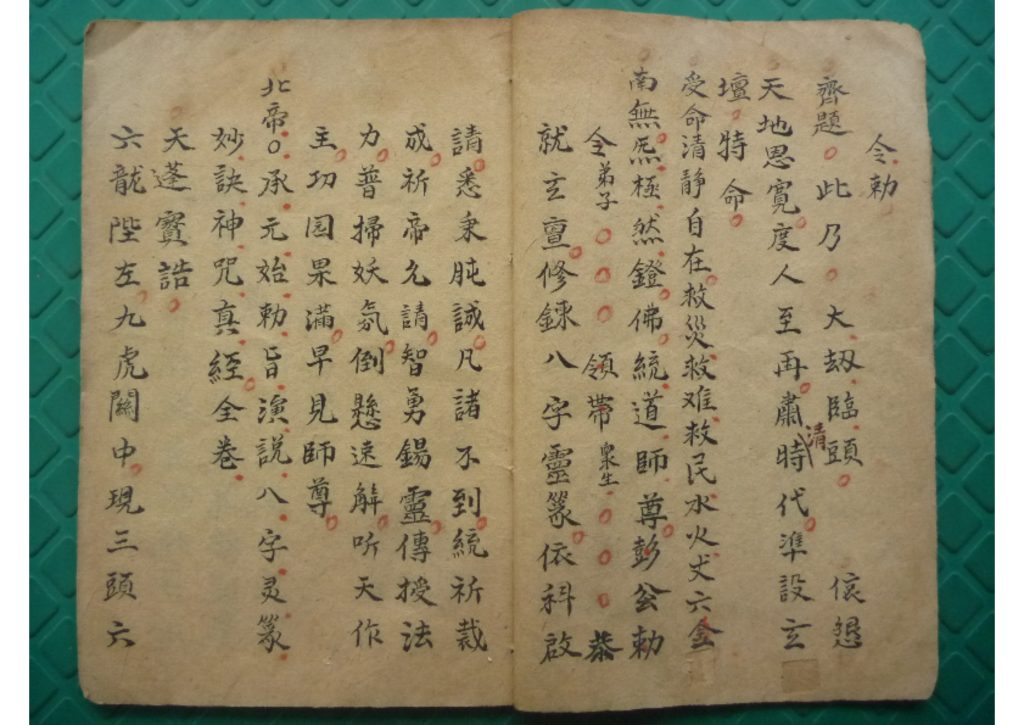 令勅
齊題此乃大刼臨頭依愳
天地恩寬度人至再肅清時代準設玄
壇特命
受命清靜自在救災救难救民水火丈六金
南無炁極然鐙佛統道師尊彭公勅
令弟子領帶衆生恭
就玄亶修鍊八字靈篆依科啟
請悉秉肫誠凡諸不到統祈裁
成祈帝允請智勇錫靈傳授法
力普掃妖氛倒懸速解听天作
主功园果滿早見師尊
北帝承元始勅旨演説八字灵篆
妙訣神咒真經全卷
天蓬寳誥
六龍陛左九虎關中現三頭六